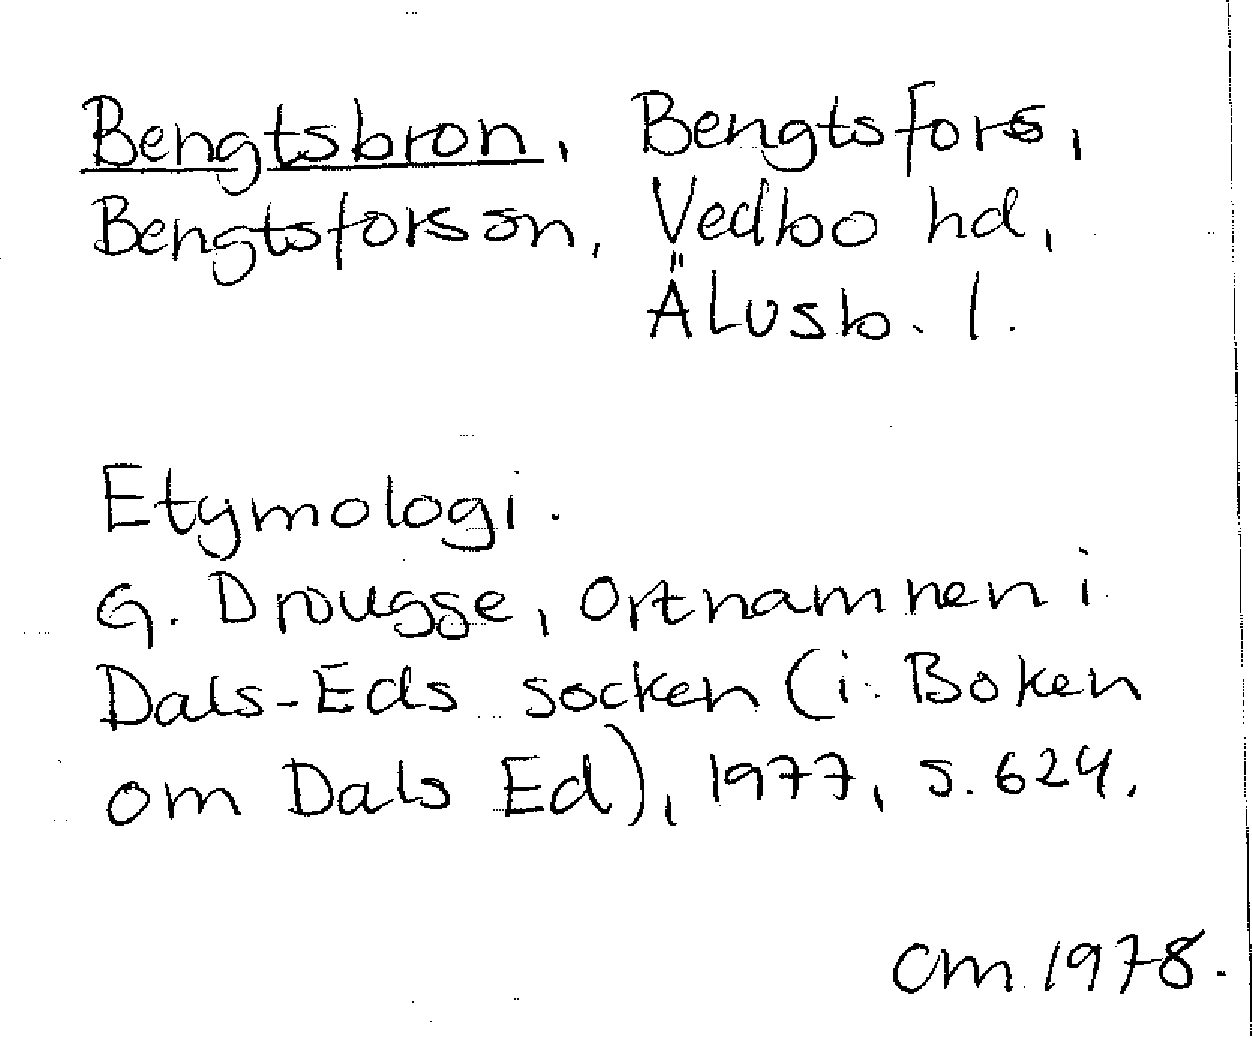 Bengtsbron, Bengtsfors,
Bengtsforsön, Vedbo hd,
Älvsb. l.
Etymologi.
G. Drougge, Ortnamnen i
Dals-Eds socken (i: Boken
om Dals Ed), 1977, s. 624.
CM 1978.